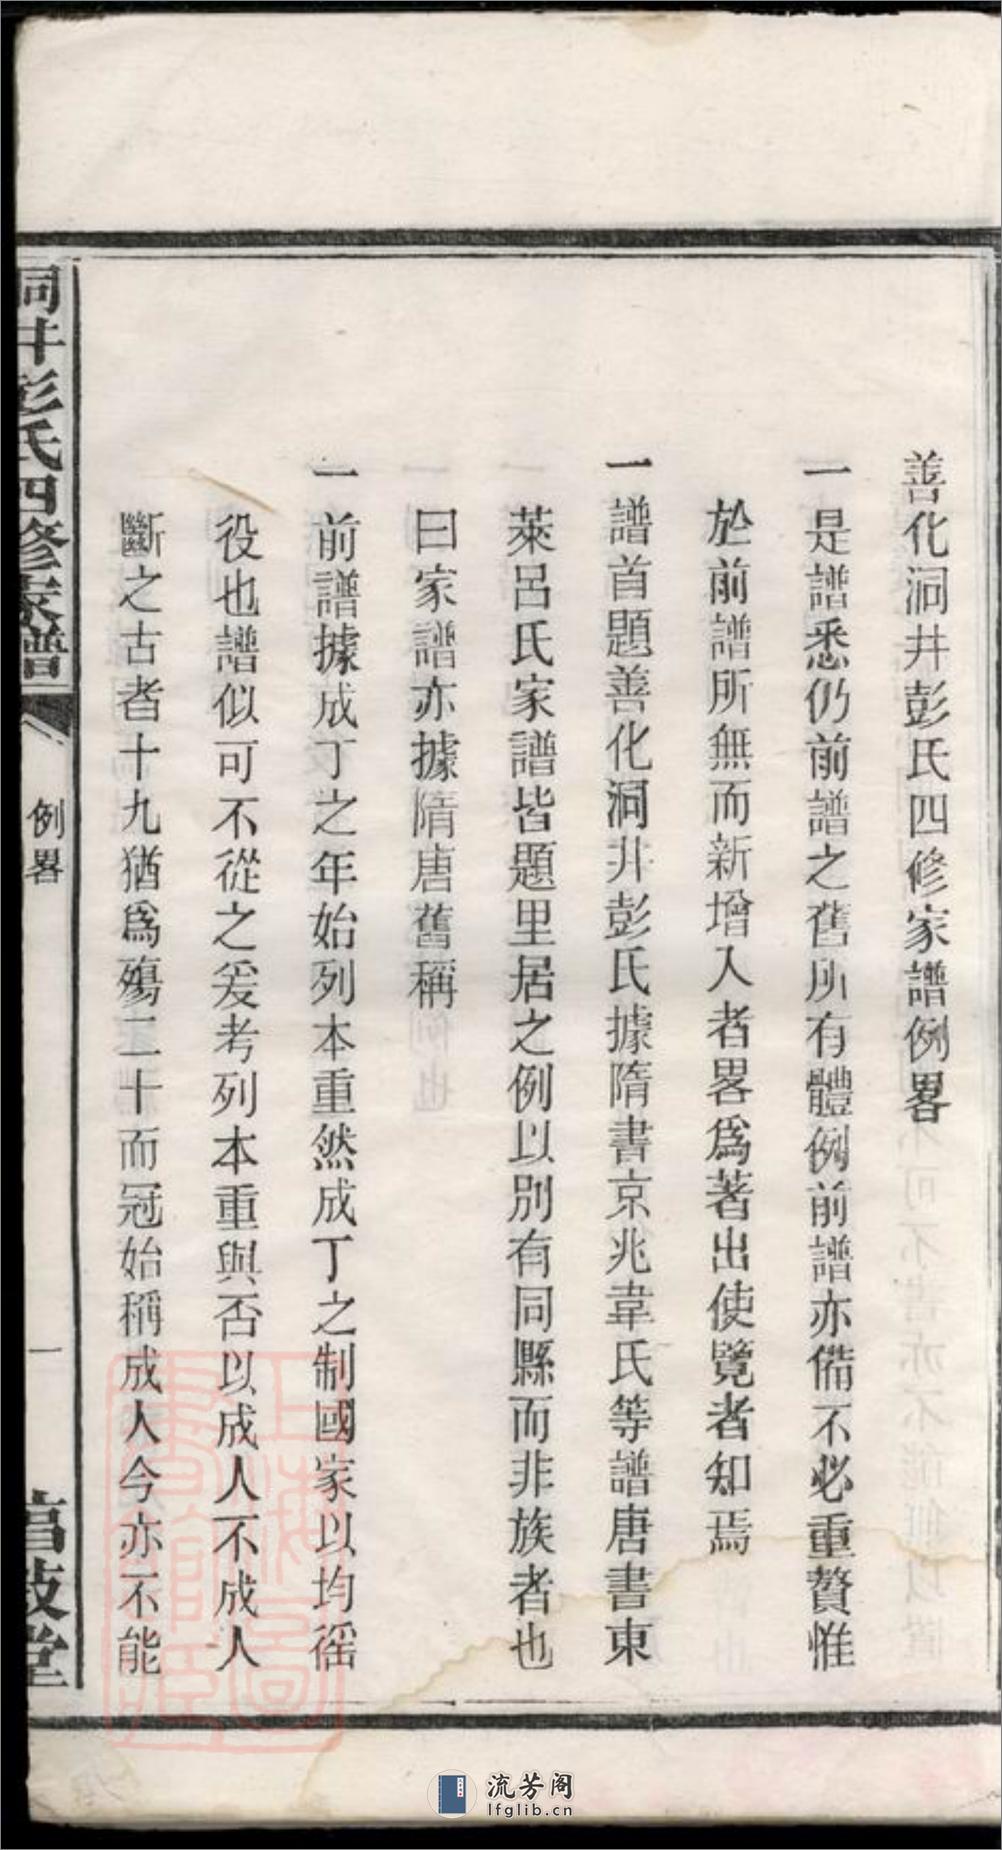 善化洞井彭氏四修家譜例畧
一是譜悉仍前譜之舊所有體例前譜亦備不必重贅惟
於前譜所無而新增入者畧爲著出使覽者知焉
一譜首題善化洞井彭氏據隋書京兆韋氏等譜唐書東
萊呂氏家譜皆題里居之例以別有同縣而非族者也
曰家譜亦據隋唐舊稱
一前譜據成丁之年始列本重然成丁之制國家以均徭
役也譜似可不從之爰考列本重與否以成人不成人
斷之古者十九猶爲殤二十而冠始稱成人今亦不能
洞井彭氏四修家譜
例畧
一
信敍堂
上海圖書館藏
流芳阁
lfglib.cn